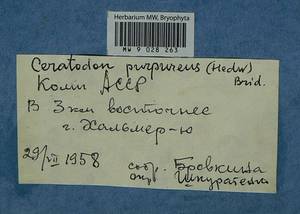 Herbarium MW, Bryophyta
MW 9 028 263
Ceratodon purpureus (Hedw)
Brid.
Коми АССР
В 3 км восточнее
г. Хальмер-ю
29/VII 1958
собр. Бровкина
опр. Шкуратенко